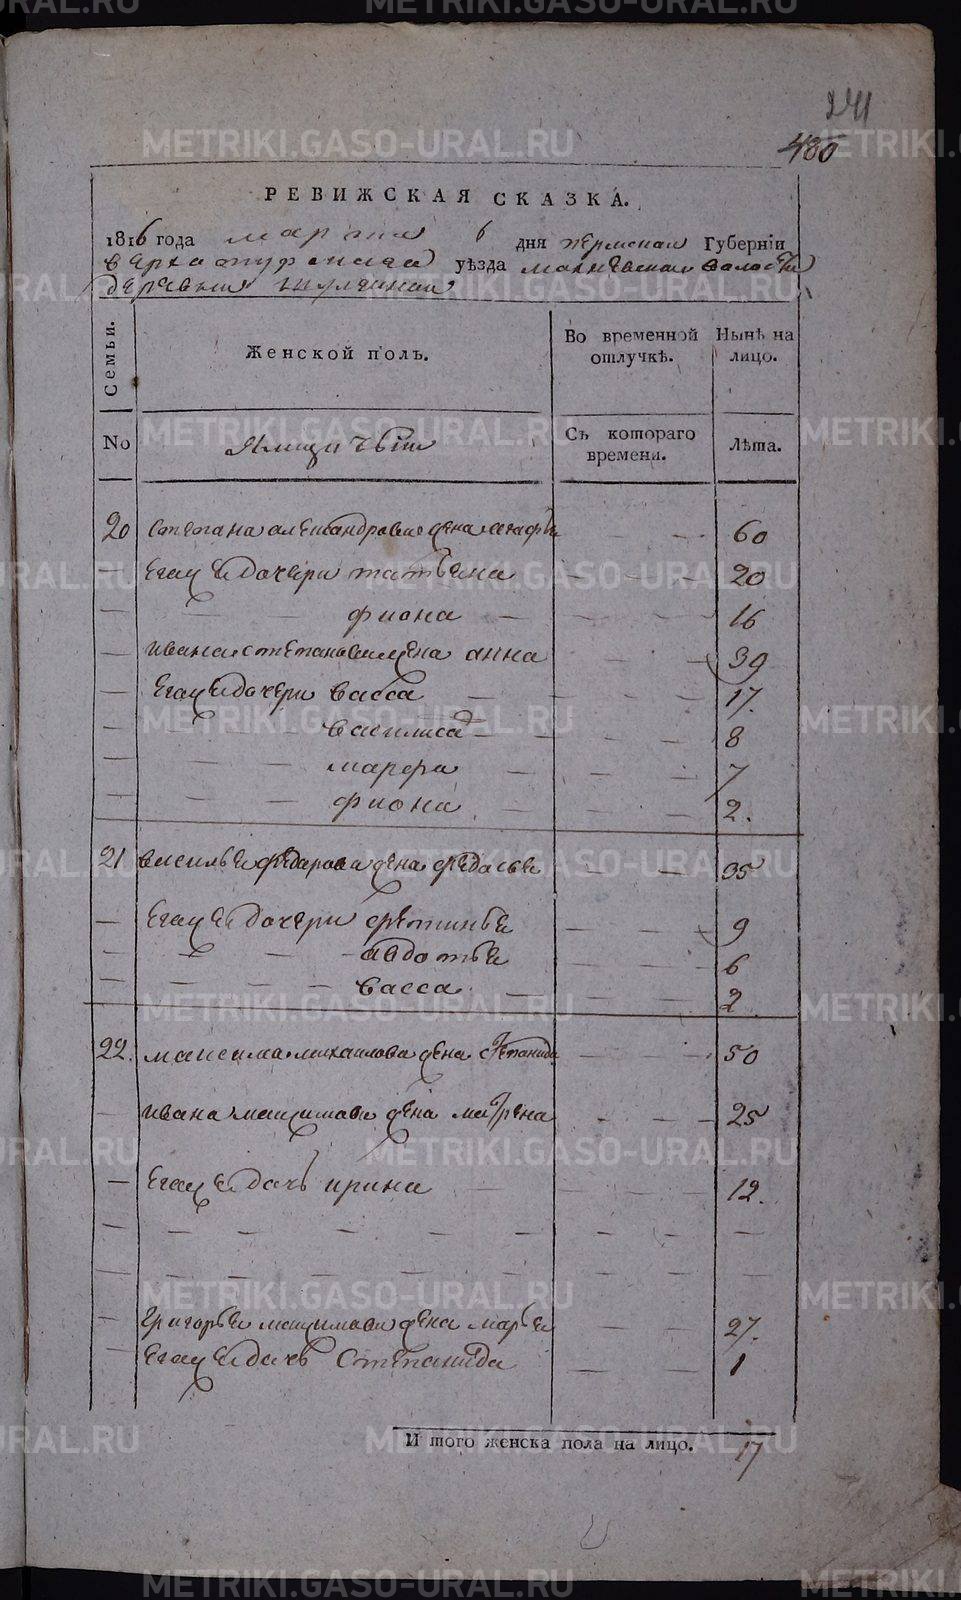 241
480
РЕВИЖСКАЯ СКАЗКА.
1816 года марта 6 дня пермской Губерніи
верхотурскаго уѣзда махневской волости
деревни
Семьи.
Женской полъ.
Во временной отлучкѣ.
Нынѣ на лицо.
No
Ямщичьи
Съ котораго времени.
Лѣта.
20 степана александрова жена 60
— Егаже дочери татьяна — — — 20
— — — фиона — — — — 16
ивана степанова жена анна — — 39
— Егаже дочери васса — — — — 17.
— — — василиса — — — — 8
— — — марфа — — — — 7
— — — фиона — — — — 2.
21 василья федарова жена федосья — — 35
— Егаже дочери фетинья — — — 9
— — — авдотья — — — 6
— — — васса — — — — 2
22. максима михаилова жена степанида — — 50
— ивана максимова жена матрена — — 25
— Егаже дочь ирина — — — — 12.
— григорья максимова жена марья — — 27.
— Егаже дочь степанида — — 1
И того женска пола на лицо. 17
METRIKI.GASO-URAL.RU